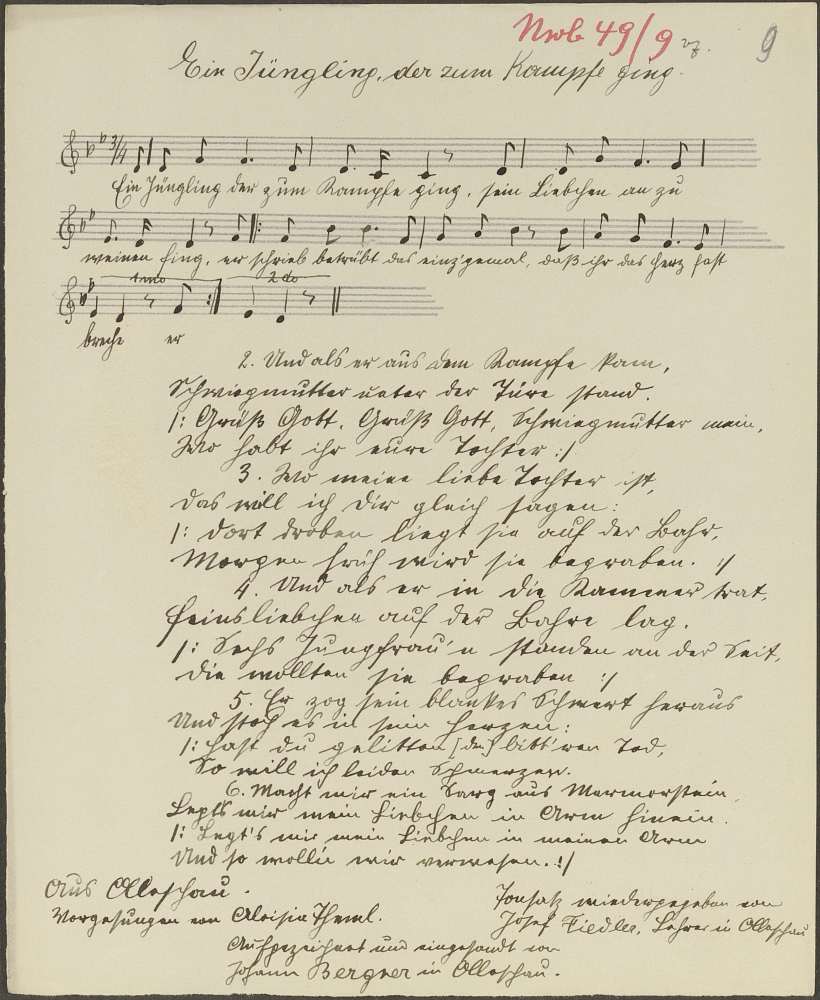 Nwb 49/9
9
Ein Jüngling, der zum Kampfe ging.
3/4
Ein Jüngling der zum Kampfe ging, sein Liebchen an zu
weinen fing, er schrieb betrübt das einz'gemal, daß ihr das Herz fast
1mo 2do
breche er
2. Und als er aus dem Kampfe kam,
Schwiegmutter unter der Türe stand.
/: Grüß Gott, Grüß Gott, Schwiegmutter mein,
Wo habt ihr eure Tochter :/
3. Wo meine liebe Tochter ist,
das will ich dir gleich sagen:
/: Dort droben liegt sie auf der Bahr,
Morgen früh wird sie begraben. :/
4. Und als er in die Kammer trat,
Feinsliebchen auf der Bahre lag.
/: Sechs Jungfrau'n standen an der Seit,
die wollten sie begraben :/
5. Er zog sein blankes Schwert heraus
Und stach es in sein Herzen:
/: Hast du gelitten (den) bitt'ren Tod,
So will ich leiden Schmerzen.
6. Macht mir ein Sarg aus Marmorstein,
Legts mir mein Liebchen in Arm hinein.
/: Legt's mir mein Liebchen in meinen Arm
Und so wollen wir verwesen. :/
Aus Olleschau.
Vorgesungen von Aloisia Theml.
Tonsatz wiedergegeben von
Josef Fiedler, Lehrer in Olleschau
Aufgezeichnet und eingesandt von
Johann Bergner in Olleschau.